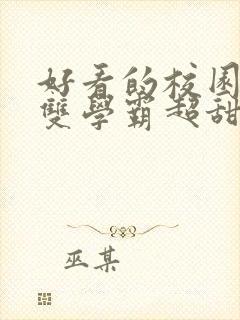 好看的校园
雙學霸超甜
巫某